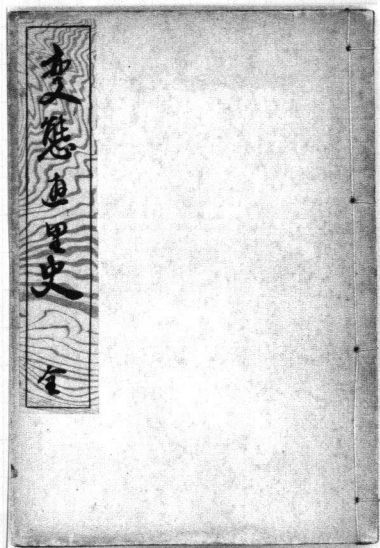 変態遊里史 全